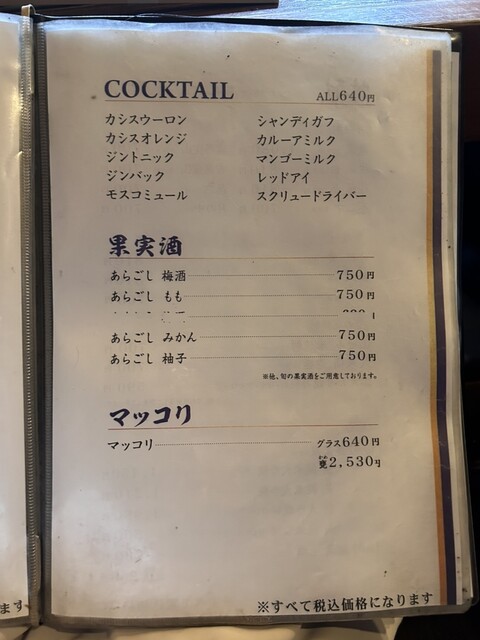 COCKTAIL ALL640円
カシスウーロン シャンディガフ
カシスオレンジ カルーアミルク
ジントニック マンゴーミルク
ジンバック レッドアイ
モスコミュール スクリュードライバー
果実酒
あらごし 梅酒 750円
あらごし もも 750円
あらごし みかん 750円
あらごし 柚子 750円
※他、旬の果実酒をご用意しております。
マッコリ
マッコリ グラス640円
甕2,530円
※すべて税込価格になります
ます